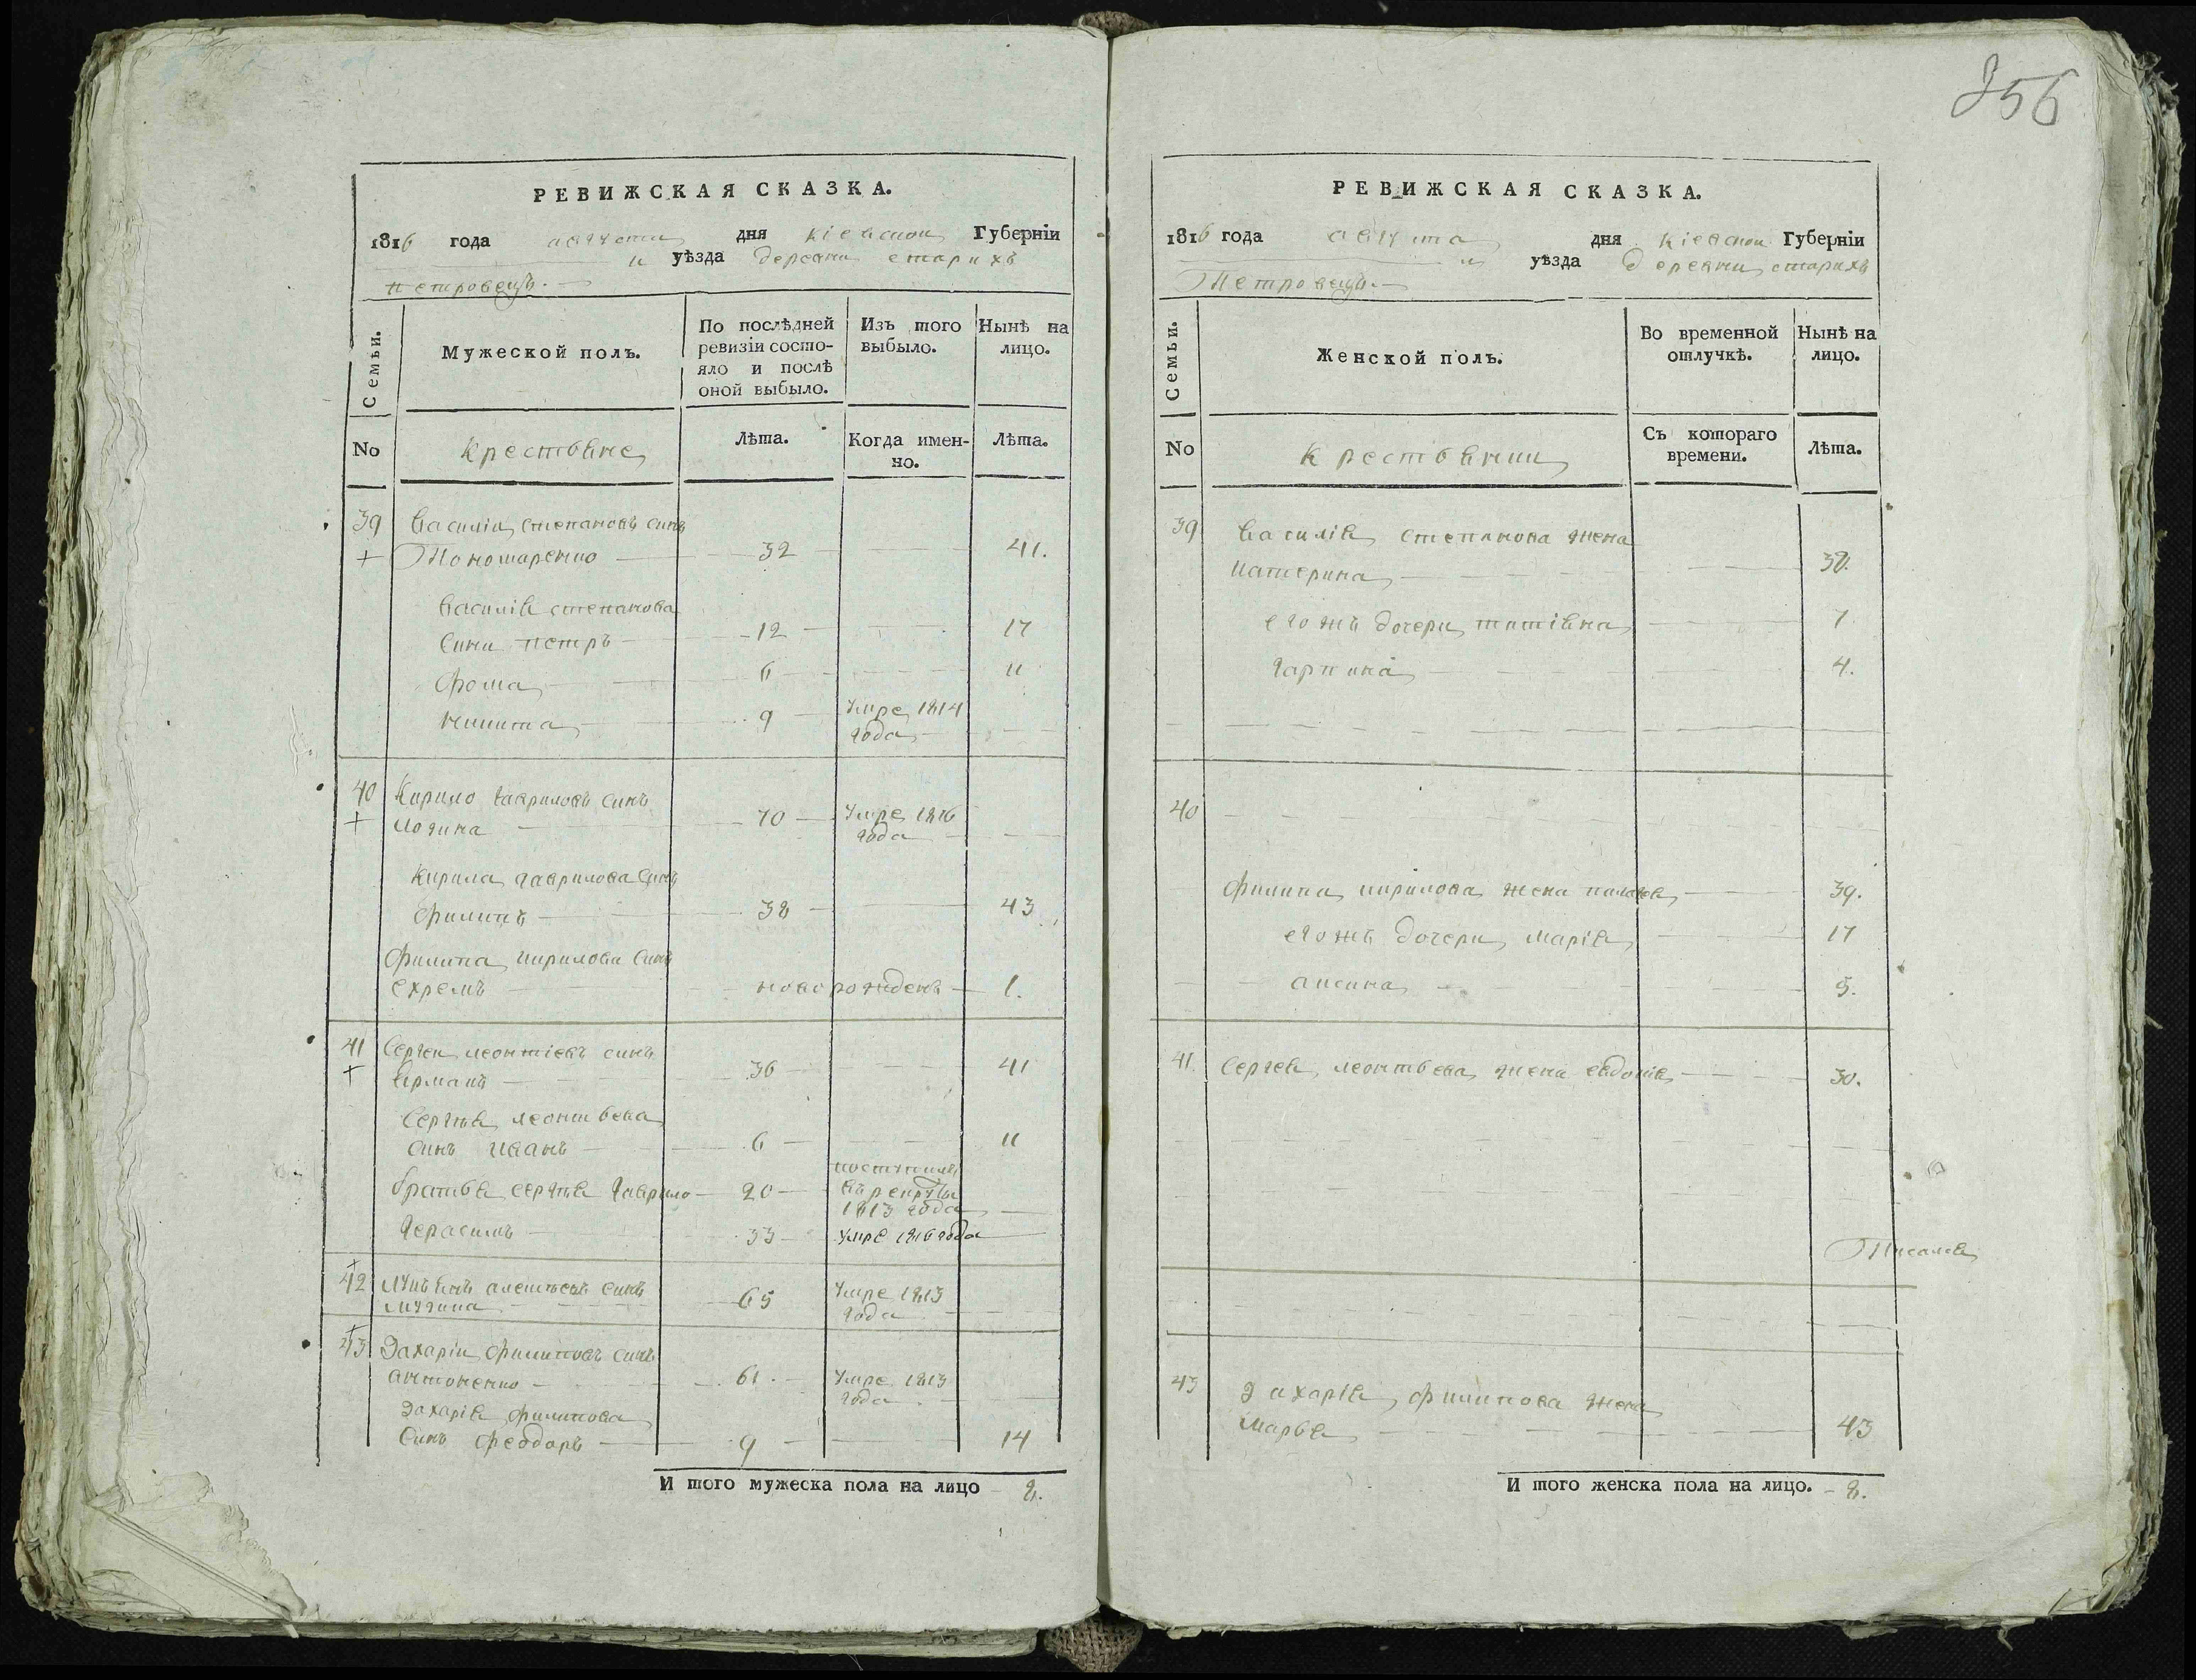 356
РЕВИЖСКАЯ СКАЗКА.
1816 года августа дня Кіевской Губерніи
и уѣзда деревни старихъ
петровецъ.
Семьи.
Мужеской полъ.
По послѣдней ревизіи состояло и послѣ оной выбыло.
Изъ того выбыло.
Нынѣ на лицо.
No
крестьяне
Лѣта.
Когда именно.
Лѣта.
39 Василіи степановъ синъ
Пономаренко 32 41.
василія степанова
сини петръ 12 17
фома 6 11
никита 9 умре 1814
года
40 Кирило гавриловъ синъ
70 умре 1816
года
Кирила гаврилова синъ
филипъ 38 43
филипа кирилова синъ
ехремъ новорожденъ 1.
41 Сергеи леонтіевъ синъ
36 41
Сергѣя леонтьева
синъ иванъ 6 11
братья сергѣя гаврило 20 поступилъ
въ рекруты
1813 года
герасимъ 33 умре 1816 года
42 синъ
65 умре 1813
года
43 Захаріи филиповъ синъ
антоненко 61. умре 1813
года
Захарія филипова
синъ феодоръ 9 14
И того мужеска пола на лицо 8.
РЕВИЖСКАЯ СКАЗКА.
1816 года августа дня Кіевской Губерніи
и уѣзда деревни старихъ
Петровецъ.
Семьи.
Женской полъ.
Во временной отлучкѣ.
Нынѣ на лицо.
No
крестьянки
Съ котораго времени.
Лѣта.
39 василія степанова жена
катерина 38.
его жъ дочери татіяна 7
гарпина 4.
40
филипа кирилова жена 39.
его жъ дочери марія 17
аксина 5.
41 Сергея леонтьева жена евдокія 30.
43 Захарія филипова жена
марья 43
И того женска пола на лицо. 8.